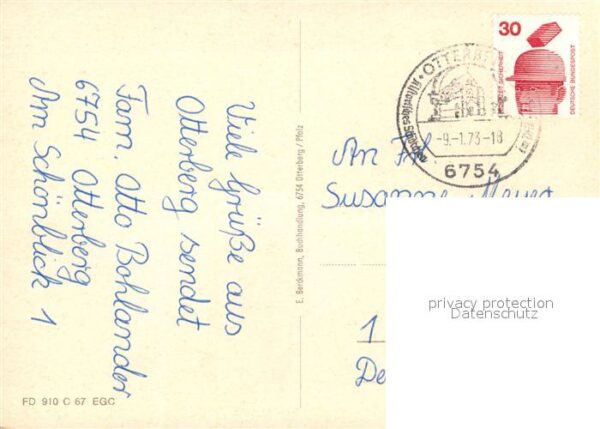 Viele Grüße aus
Otterberg sendet
Fam. Otto Bohlander
6754 Otterberg
Am Schönblick 1
FD 910 C 67 EGC
E. Berckmann, Buchhandlung, 6754 Otterberg / Pfalz
30
JEDERZEIT SICHERHEIT
DEUTSCHE BUNDESPOST
-9.-1.73-18
6754
An Frl
Susanne Meyer
1
De
privacy protection
Datenschutz